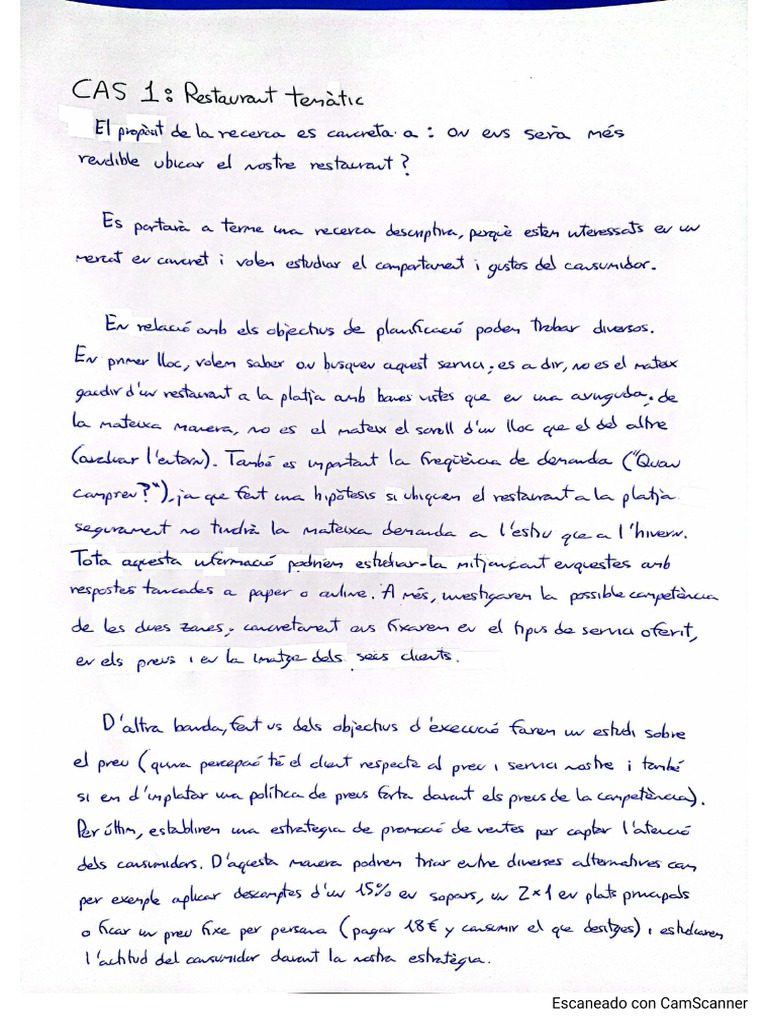 CAS 1: Restaurant temàtic
El propòsit de la recerca es concreta a: on ens serà més
rendible ubicar el nostre restaurant?
Es portarà a terme una recerca descriptiva, perquè estem interessats en un
mercat en concret i volem estudiar el comportament i gustos del consumidor.
En relació amb els objectius de planificació podem trobar diversos.
En primer lloc, volem saber on busquen aquest servei; és a dir, no es el mateix
gaudir d'un restaurant a la platja amb bones vistes que en una avinguda; de
la mateixa manera, no es el mateix el soroll d'un lloc que el del altre
(avaluar l'entorn). També es important la freqüència de demanda ("Quan
compren?"), ja que fent una hipòtesis si ubiquem el restaurant a la platja
segurament no tindrà la mateixa demanda a l'estiu que a l'hivern.
Tota aquesta informació podriem estudiar-la mitjançant enquestes amb
respostes tancades a paper o online. A més, investigarem la possible competència
de les dues zones; concretament ens fixarem en el tipus de servei oferit,
en els preus i en la imatge dels seus clients.
D'altra banda, fent ús dels objectius d'execució farem un estudi sobre
el preu (quina percepció té el client respecte al preu i servei nostre i també
si em d'implatar una política de preus forta davant els preus de la competència).
Per últim, establirem una estratègia de promoció de ventes per captar l'atenció
dels consumidors. D'aquesta manera podrem triar entre diverses alternatives com
per exemple aplicar descomptes d'un 15% en sopars, un 2x1 en plats principals
o ficar un preu fixe per persona (pagar 18€ y consumir el que desitges) i estudiarem
l'actitud del consumidor davant la nostra estratègia.
Escaneado con CamScanner